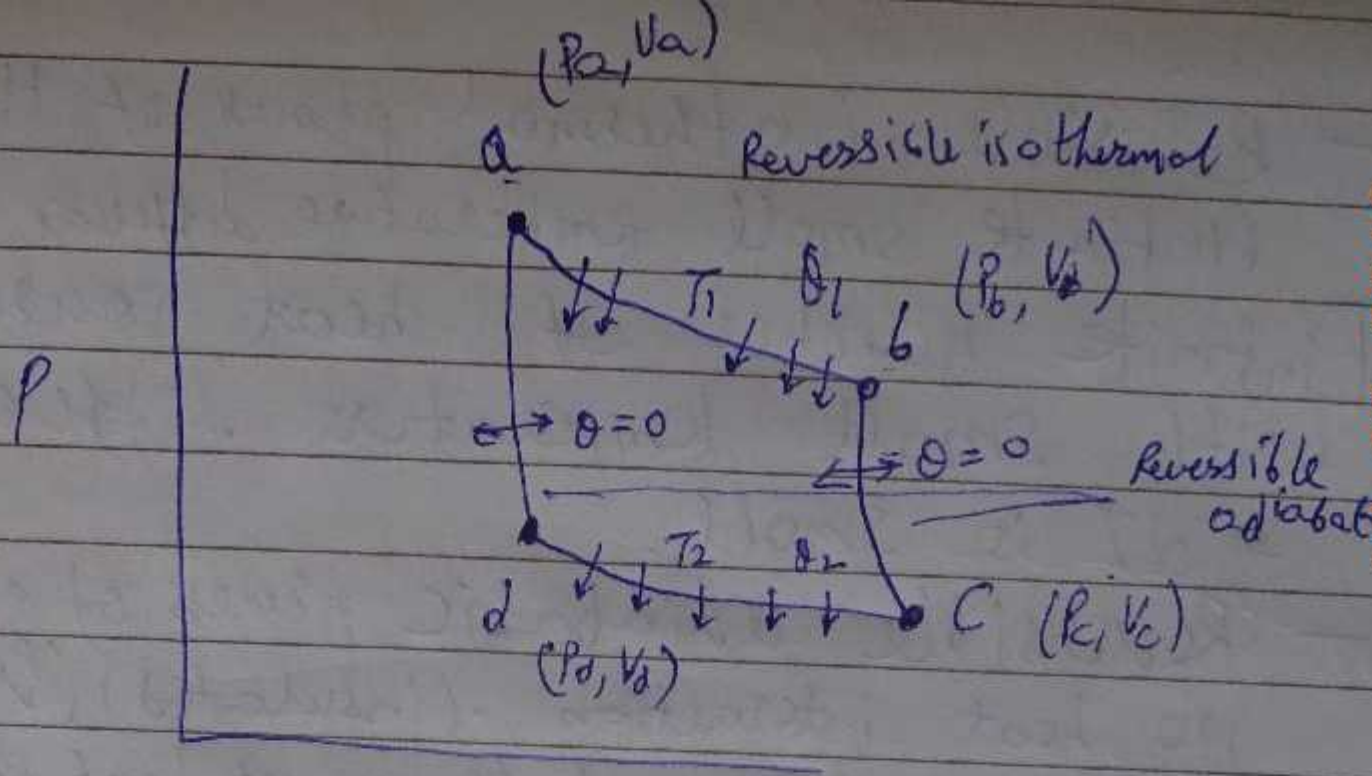 (Pa, Va)
a
Reversible isothermal
T1 θ1 (Pb, Vb)
b
P
θ = 0
θ = 0
Reversible
adiabat
T2 θ2
d
C (Pc, Vc)
(Pd, Vd)